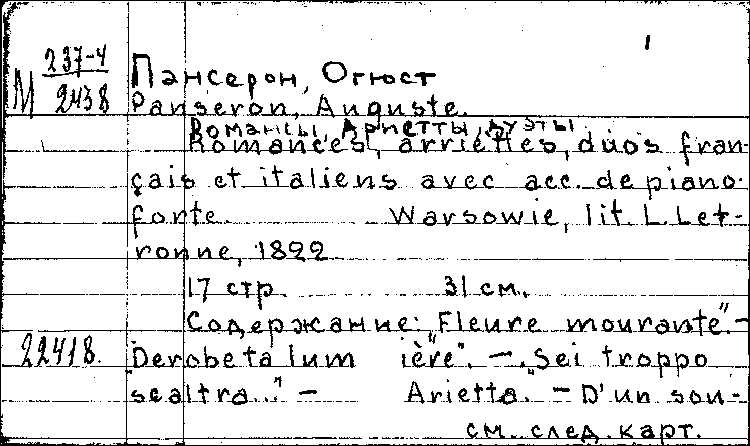 1
М 237-4
2438
Пансерон, Огюст
Panseron, Auguste.
Романсы, Ариетты, дуэты
Romances, arriettes, duos fran-
çais et italiens avec acc. de piano-
forte. Warsowie, lit. L. Let-
ronne, 1822
17 стр. 31 см.
Содержание: „Fleure mourante" –
22418. Derobe ta lum ière". – „Sei troppo
scaltra..." – Arietta. – D'un sou-
см. след. карт.